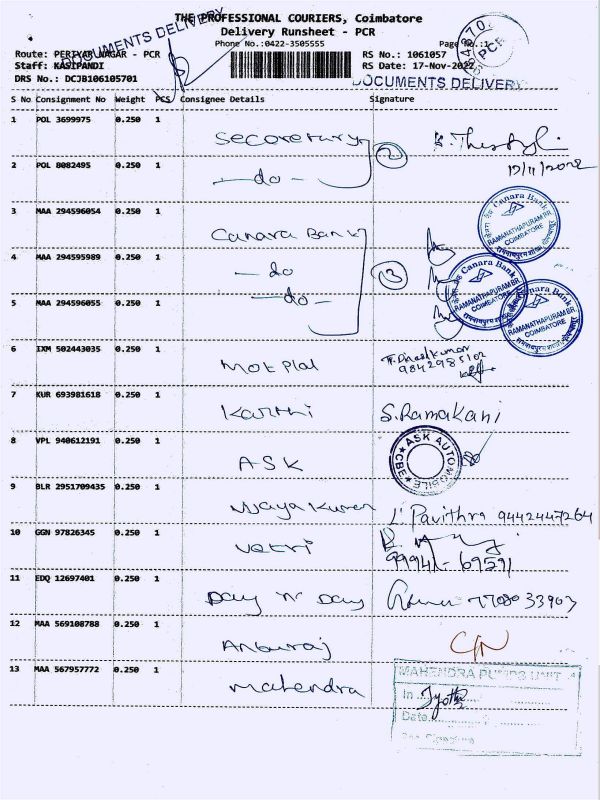 THE PROFESSIONAL COURIERS, Coimbatore
Delivery Runsheet - PCR
DOCUMENTS DELIVERY
Phone No.:0422-3505555
Page No.:1
PCR
Route: PERIYAR NAGAR - PCR
RS No.: 1061057
Staff: KASIPANDI
RS Date: 17-Nov-2022
DRS No.: DCJB106105701
DOCUMENTS DELIVERY
S No Consignment No Weight PCS Consignee Details Signature
1 POL 3699975 0.250 1 Secoretary
2
17/11/2022
2 POL 8082495 0.250 1 - do -
3 MAA 294596054 0.250 1 Canara Bank
Canara Bank
RAMANATHAPURAM BR
COIMBATORE
4 MAA 294595989 0.250 1 - do
3
Canara Bank
RAMANATHAPURAM BR
COIMBATORE
5 MAA 294596055 0.250 1 - do -
Canara Bank
RAMANATHAPURAM BR
COIMBATORE
6 IXM 502443035 0.250 1 Mot Plal
9842985102
7 KUR 693981618 0.250 1 Karthi S. Ramakani
8 VPL 940612191 0.250 1 ASK
ASK AUTOMOBILE
CBE
9 BLR 2951709435 0.250 1 L. Pavithra 9442447264
10 GGN 97826345 0.250 1 Vetri
99941-69591
11 EDQ 12697401 0.250 1 Day 'N' Day 77080 33903
12 MAA 569108788 0.250 1 Anburaj
13 MAA 567957772 0.250 1 Mahendra
MAHENDRA PUMPS UNIT
In
Jyothi
Date